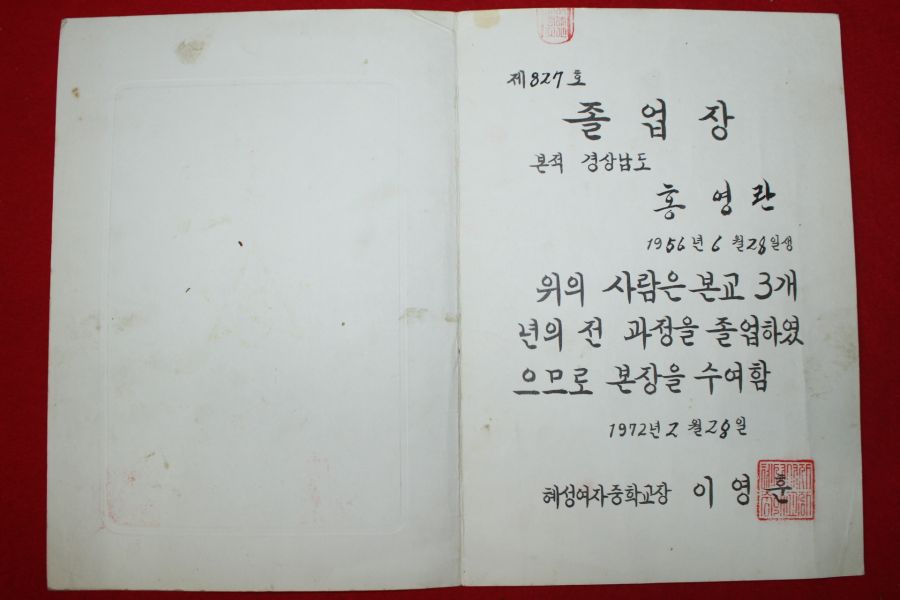 제827호
졸업장
본적 경상남도
홍영란
1956년 6월 28일생
위의 사람은 본교 3개
년의 전 과정을 졸업하였
으므로 본장을 수여함
1972년 2월 28일
혜성여자중학교장 이영훈